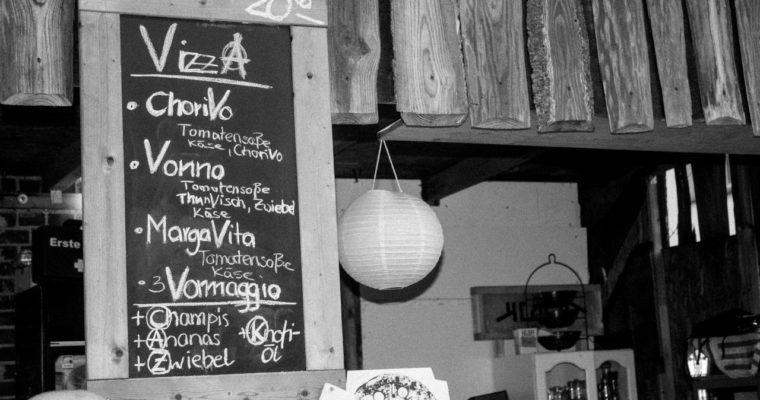 20
VizzA
• ChoriVo
Tomatensoße
Käse, ChoriVo
• Vonno
Tomatensoße
ThunVisch, Zwiebel
Käse
• MargaVita
Tomatensoße
Käse
• 3 Vormaggio
+ Champis
+ Ananas
+ Zwiebel
+ Knofi-
öl
Erste